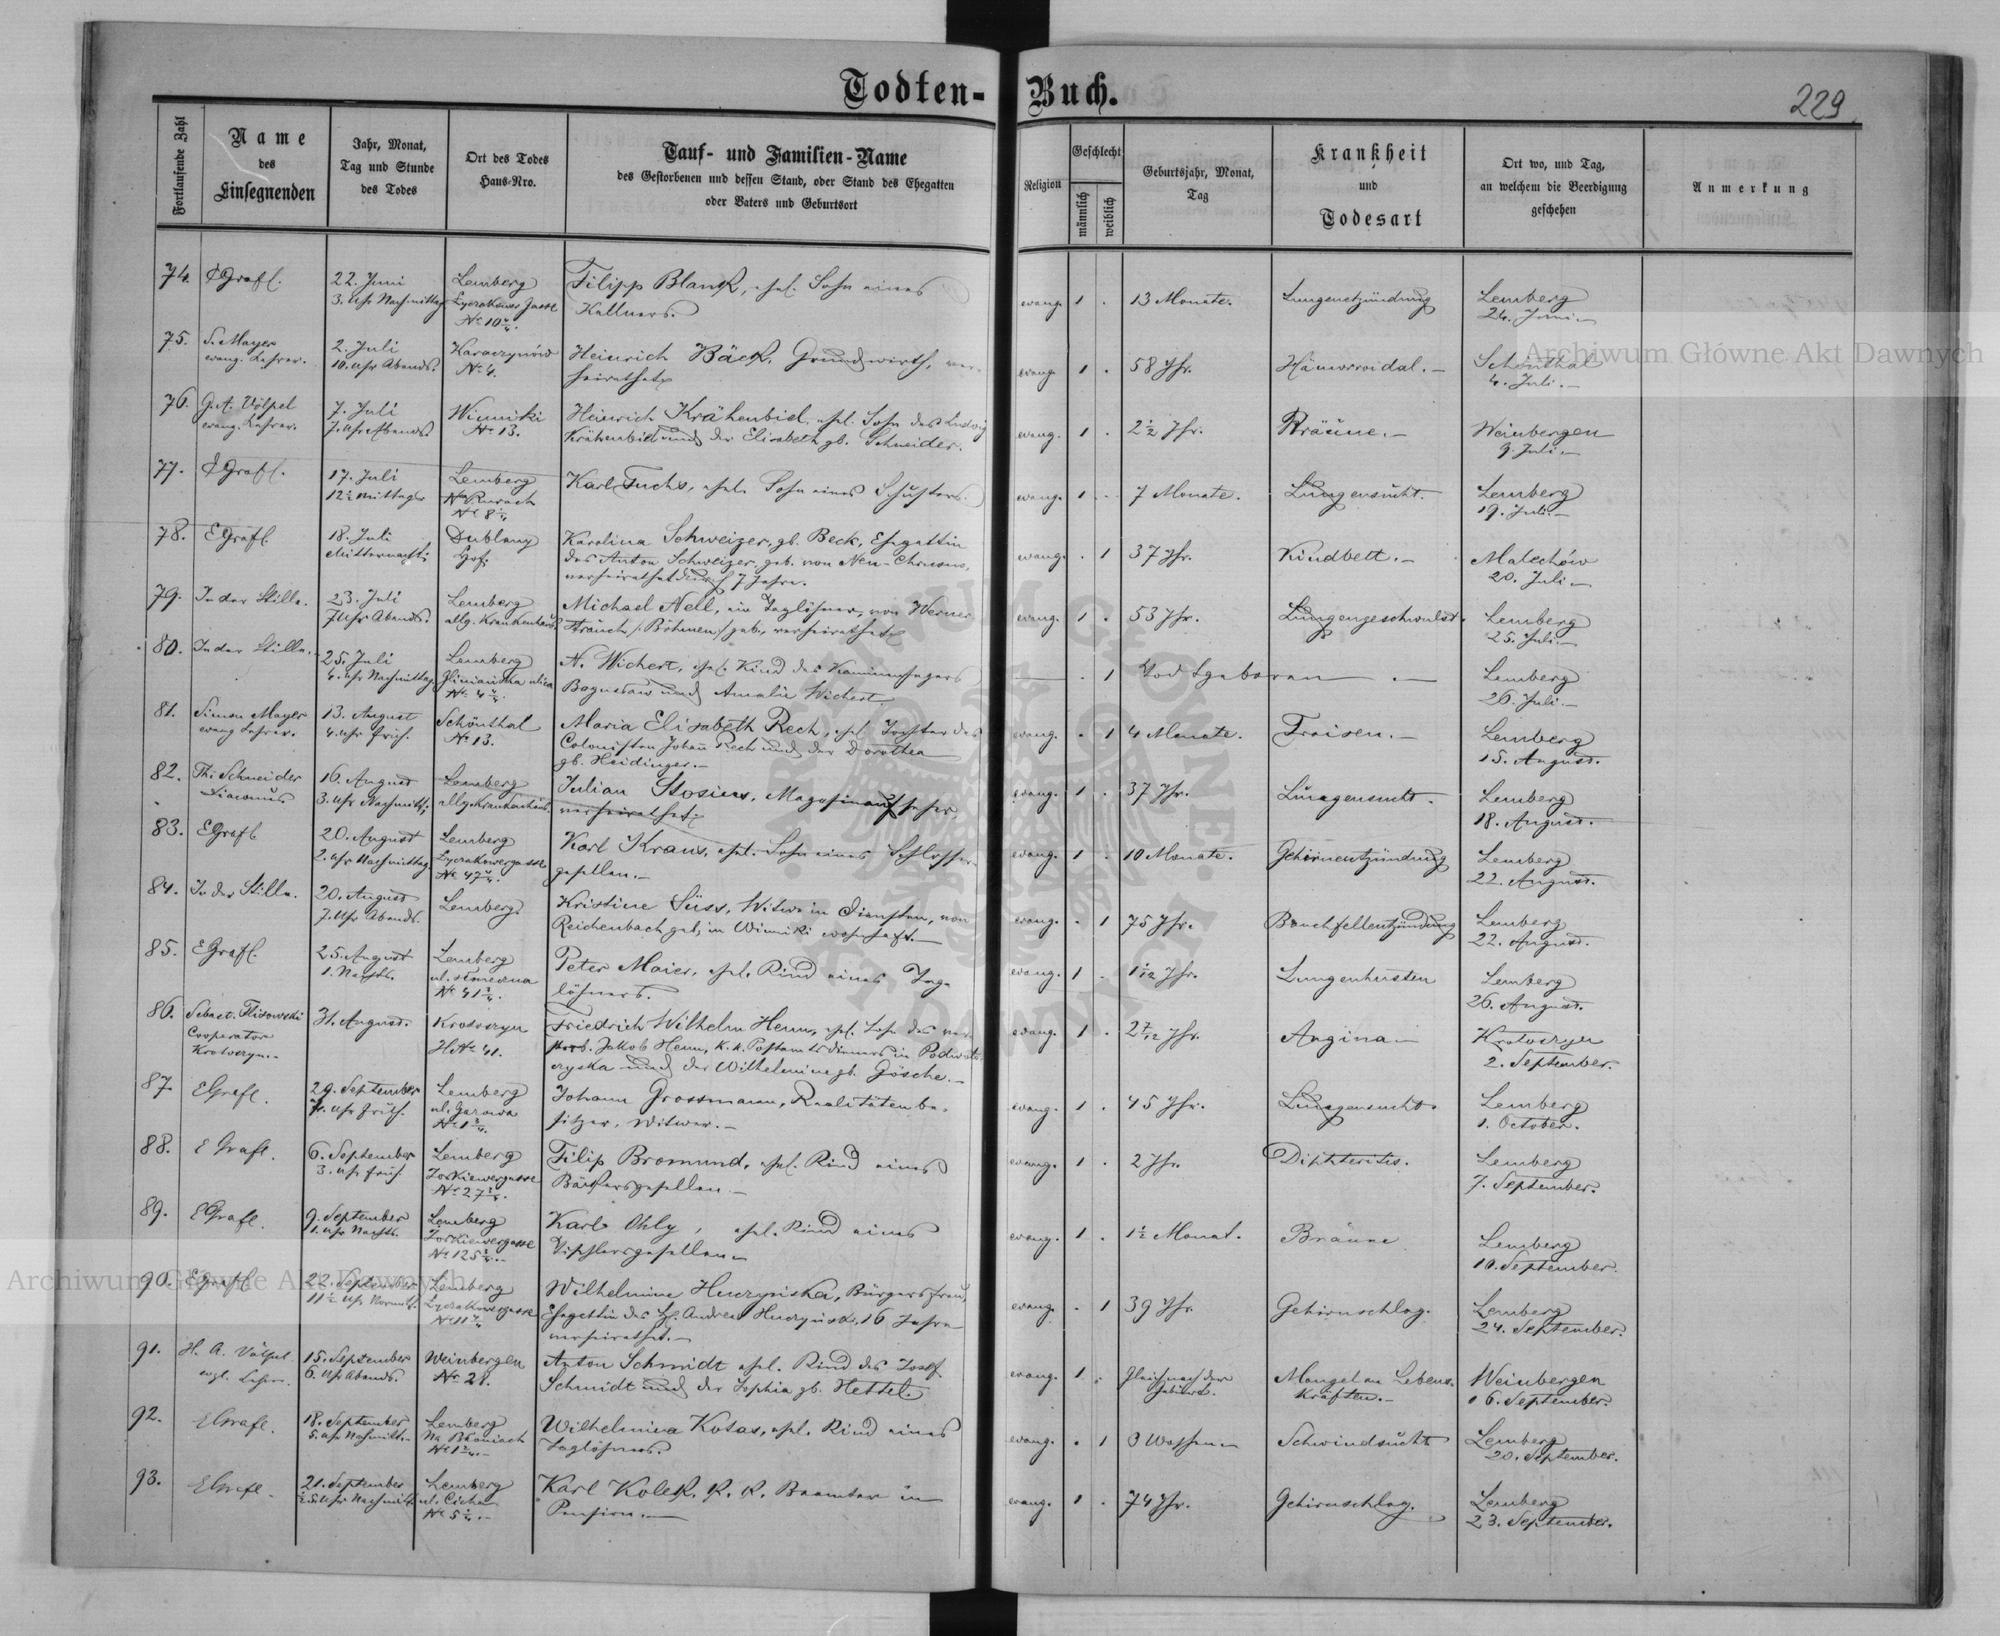 Todten- Buch.
229
Fortlaufende Zahl
Name
des
Einsegnenden
Jahr, Monat,
Tag und Stunde
des Todes
Ort des Todes
Haus-Nro.
Tauf- und Familien-Name
des Gestorbenen und dessen Stand, oder Stand des Ehegatten
oder Vaters und Geburtsort
Religion
Geschlecht
männlich
weiblich
Geburtsjahr, Monat,
Tag
Krankheit
und
Todesart
Ort wo, und Tag,
an welchem die Beerdigung
geschehen
Anmerkung
74. EGrafl. 22. Juni Lemberg Filipp Blank, ehel. Sohn eines
3. Uhr Nachmittag N° 10 Kellners.
evang. 1 . 13 Monate. Lungenetzündung Lemberg
24. Juni
75. S. Mayer 2. Juli Karaczynów Heinrich Bäck, Grundwirth, ver-
evang. Lehrer. 10. Uhr Abends. N° 4. heirathet
evang. 1 . 58 Jhr. Hämorroidal. Schönthal
4. Juli.
76. G. A. Völpel 7. Juli Winniki Heinrich Krähenbiel, ehel. Sohn des Ludwig
evang. Lehrer. 7. Uhr Abends. N° 13. Krähenbiel und der Elisabeth gb. Schneider.
evang. 1 . 2 1/2 Jhr. Bräune. Weinbergen
9. Juli
77. EGrafl. 17. Juli Lemberg Karl Fuchs, ehel. Sohn eines Schusters.
12 1/2 Mittags Na Rurach
N° 8
evang. 1 . 7 Monate. Lungensucht. Lemberg
19. Juli.
78. EGrafl. 18. Juli Dublany Karolina Schweizer, gb. Beck, Ehegattin
Mitternacht Hof. des Anton Schweizer, geb. von Neu-Chrusno,
verheirathet durch 7 Jahre.
evang. . 1 37 Jhr. Kindbett. Malechów
20. Juli
79. In der Stille. 23. Juli Lemberg Michael Nell, ein Taglöhner, von
7 Uhr Abends. allg. Krankenhaus. /:Böhmen:/ geb., verheirathet
evang. 1 . 53 Jhr. Lungengeschwulst. Lemberg
25. Juli
80. In der Stille. 25. Juli Lemberg N. Wichert, ehel. Kind des Kaminfegers
4. Uhr Nachmittag Gliniańska ulica Boguslaw und Amalie Wichert
N° 4
. 1 Todtgeboren Lemberg
26. Juli.
81. Simon Mayer 13. August Schönthal Maria Elisabeth Rech, ehel. Tochter des
evang Lehrer. 4. Uhr Früh. N° 13. Colonisten Johann Rech und der Dorothea
gb. Heidinger.
evang. . 1 4 Monate. Fraisen. Lemberg
15. August.
82. Th. Schneider 16. August Lemberg Julian Stosius, Magazinaufseher,
Diaconus. 3. Uhr Nachmitt. allg. Krankenhaus. verheirathet
evang. 1 . 37 Jhr. Lungensucht. Lemberg
18. August.
83. EGrafl 20. August Lemberg Karl Kraus, ehel. Sohn eines Schlosser-
2. Uhr Nachmittag. Lyczakowergasse gesellen.
N° 47
evang. 1 . 10 Monate. Gehirnentzündung Lemberg
22. August.
84. In der Stille. 20. August Lemberg. Kristine Süss, Witwe in Diensten, von
7. Uhr Abends. Reichenbach geb., in Winniki wohnhaft.
evang. . 1 75 Jhr. Bauchfellentzündung Lemberg
22. August.
85. EGrafl. 25. August Lemberg Peter Maier, ehel. Kind eines Tag-
1. Nachts. N° 41 löhners.
evang. 1 . 1 1/12 Jhr. Lungenhusten Lemberg
26. August.
86. Sebast. Flisowski 31. August. Krotoszyn Friedrich Wilhelm Henn, ehel. Sohn des ver-
Cooperator H.N° 41. storb. Jakob Henn, k. k. Postamtsdieners in Podwolo-
Krotoszyn. czyska und der Wilhelmine gb. Gösche.
evang. 1 . 2 7/12 Jhr. Angina Krotoszyn
2. September.
87 EGrafl. 29. September Lemberg Johann Grossmann, Realitätenbe-
7. Uhr Früh. N° 1 sitzer, Witwer.
evang. 1 . 45 Jhr. Lungensucht. Lemberg
1. October.
88. EGrafl. 6. September Lemberg Filip Bromund, ehel. Kind eines
3. Uhr früh. Zorkiewergasse Bäckersgesellen.
N° 27
evang. 1 . 2 Jhr. Diphteritis. Lemberg
7. September.
89. EGrafl. 9. September Lemberg Karl Ohly, ehel. Kind eines
1. Uhr Nachts. Zorkiewergasse Tischlersgesellen
N° 125
evang. 1 . 1 1/2 Monat. Bräune Lemberg
10. September.
90. EGrafl 22. September Lemberg Wilhelmine Huczyńska, Bürgersfrau,
11 1/2 Uhr Vormitt. Lyczakowergasse Ehegattin des H. Andreas Huczyński, 16 Jahre
N° 11 verheirathet.
evang. . 1 39 Jhr. Gehirnschlag. Lemberg
24. September.
91. H. A. Völpel 15. September Weinbergen Anton Schmidt ehel. Kind des Josef
evgl. Lehrer. 6. Uhr Abends. N° 21. Schmidt und der Sophia gb. Hettel
evang. 1 . Gleich nach der Mangel an Lebens- Weinbergen
Geburt. kräften. 16. September.
92. EGrafl. 18. September Lemberg Wilhelmina Kotas, ehel. Kind eines
5. Uhr Nachmitt. Na Błoniach Taglöhners.
N° 1
evang. . 1 3 Wochen Schwindsucht Lemberg
20. September.
93. EGrafl. 21. September Lemberg Karl Kolek, k. k. Beamter in
Uhr Nachmitt. ul. Cicha Pension.
N° 5
evang. 1 . 74 Jhr. Gehirnschlag. Lemberg
23. September.
Archiwum Główne Akt Dawnych
Archiwum Główne Akt Dawnych